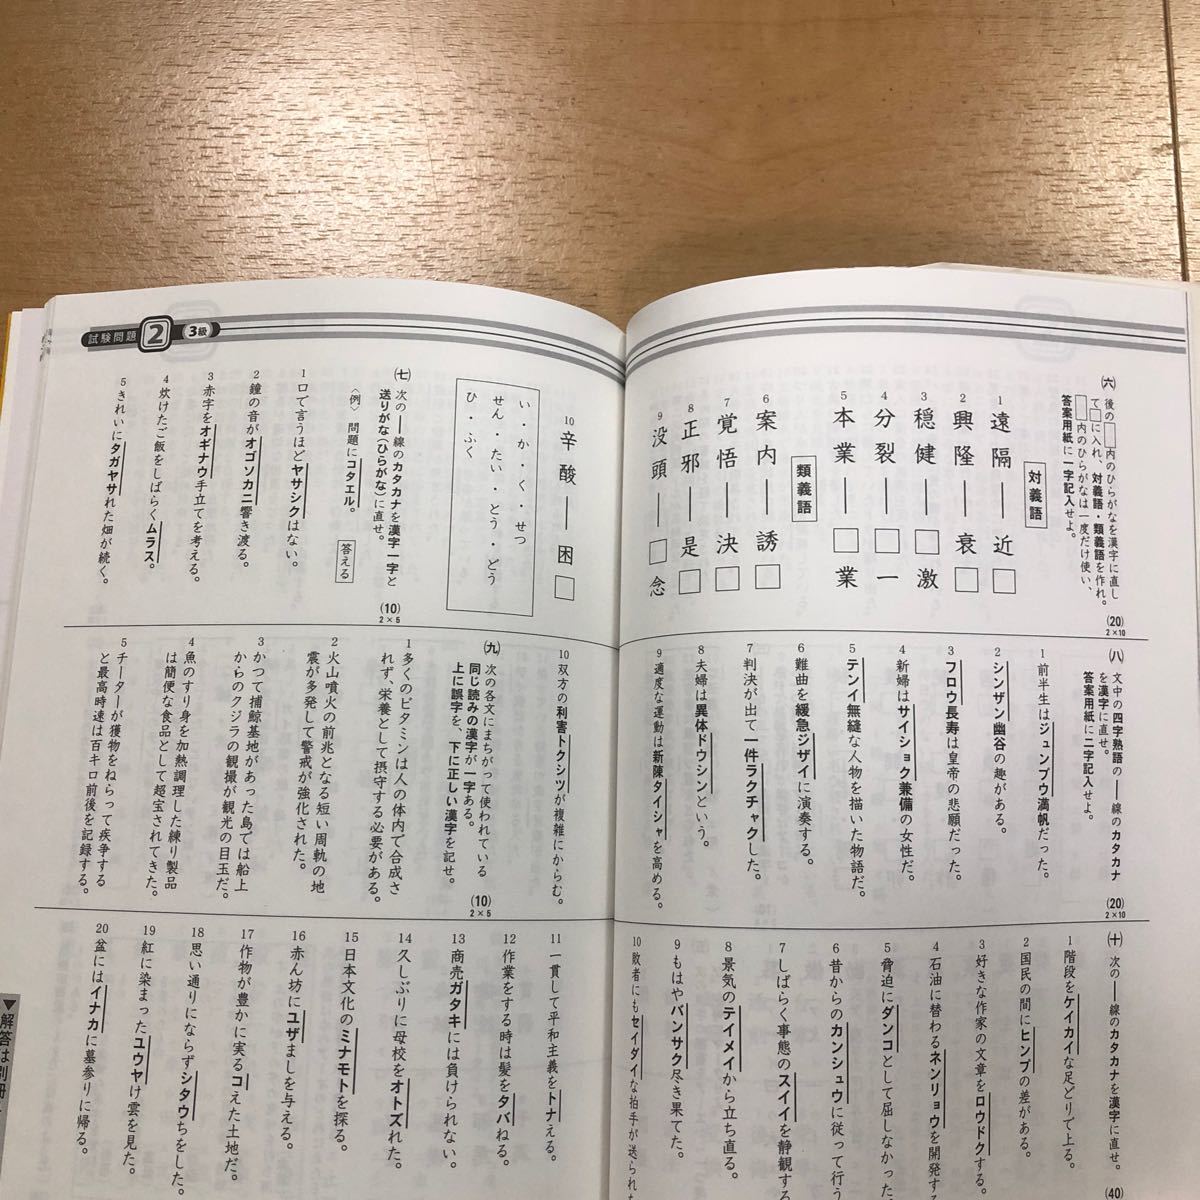 試験問題 2 3級
(六) 後の□内のひらがなを漢字に直し
て□に入れ、対義語・類義語を作れ。
□内のひらがなは一度だけ使い、
答案用紙に一字記入せよ。
(20)
2×10
対義語
1 遠隔―近□
2 興隆―衰□
3 穏健―□激
4 分裂―□一
5 本業―□業
類義語
6 案内―誘□
7 覚悟―決□
8 正邪―是□
9 没頭―□念
10 辛酸―困□
い・か・く・せつ
せん・たい・とう・どう
ひ・ふく
(七) 次の――線のカタカナを漢字一字と
送りがな(ひらがな)に直せ。
〈例〉問題にコタエル。 答える
(10)
2×5
1 口で言うほどヤサシクはない。
2 鐘の音がオゴソカニ響き渡る。
3 赤字をオギナウ手立てを考える。
4 炊けたご飯をしばらくムラス。
5 きれいにタガヤサれた畑が続く。
(八) 文中の四字熟語の――線のカタカナ
を漢字に直せ。
答案用紙に二字記入せよ。
(20)
2×10
1 前半生はジュンプウ満帆だった。
2 シンザン幽谷の趣がある。
3 フロウ長寿は皇帝の悲願だった。
4 新婦はサイショク兼備の女性だ。
5 テンイ無縫な人物を描いた物語だ。
6 難曲を緩急ジザイに演奏する。
7 判決が出て一件ラクチャクした。
8 夫婦は異体ドウシンという。
9 適度な運動は新陳タイシャを高める。
10 双方の利害トクシツが複雑にからむ。
(九) 次の各文にまちがって使われている
同じ読みの漢字が一字ある。
上に誤字を、下に正しい漢字を記せ。
(10)
2×5
1 多くのビタミンは人の体内で合成さ
れず、栄養として摂守する必要がある。
2 火山噴火の前兆となる短い周軌の地
震が多発して警戒が強化された。
3 かつて捕鯨基地があった島では船上
からのクジラの観撮が観光の目玉だ。
4 魚のすり身を加熱調理した練り製品
は簡便な食品として超宝されてきた。
5 チーターが獲物をねらって疾争する
と最高時速は百キロ前後を記録する。
(十) 次の――線のカタカナを漢字に直せ。
(40)
1 階段をケイカイな足どりで上る。
2 国民の間にヒンプの差がある。
3 好きな作家の文章をロウドクする。
4 石油に替わるネンリョウを開発する
5 脅迫にダンコとして屈しなかった
6 昔からのカンシュウに従って行う
7 しばらく事態のスイイを静観する
8 景気のテイメイから立ち直る。
9 もはやバンサク尽き果てた。
10 敗者にもセイダイな拍手が送られた
11 一貫して平和主義をトナえる。
12 作業をする時は髪をタバねる。
13 商売ガタキには負けられない。
14 久しぶりに母校をオトズれた。
15 日本文化のミナモトを探る。
16 赤ん坊にユザましを与える。
17 作物が豊かに実るコえた土地だ。
18 思い通りにならずシタウちをした。
19 紅に染まったユウヤけ雲を見た。
20 盆にはイナカに墓参りに帰る。
▼解答は別冊